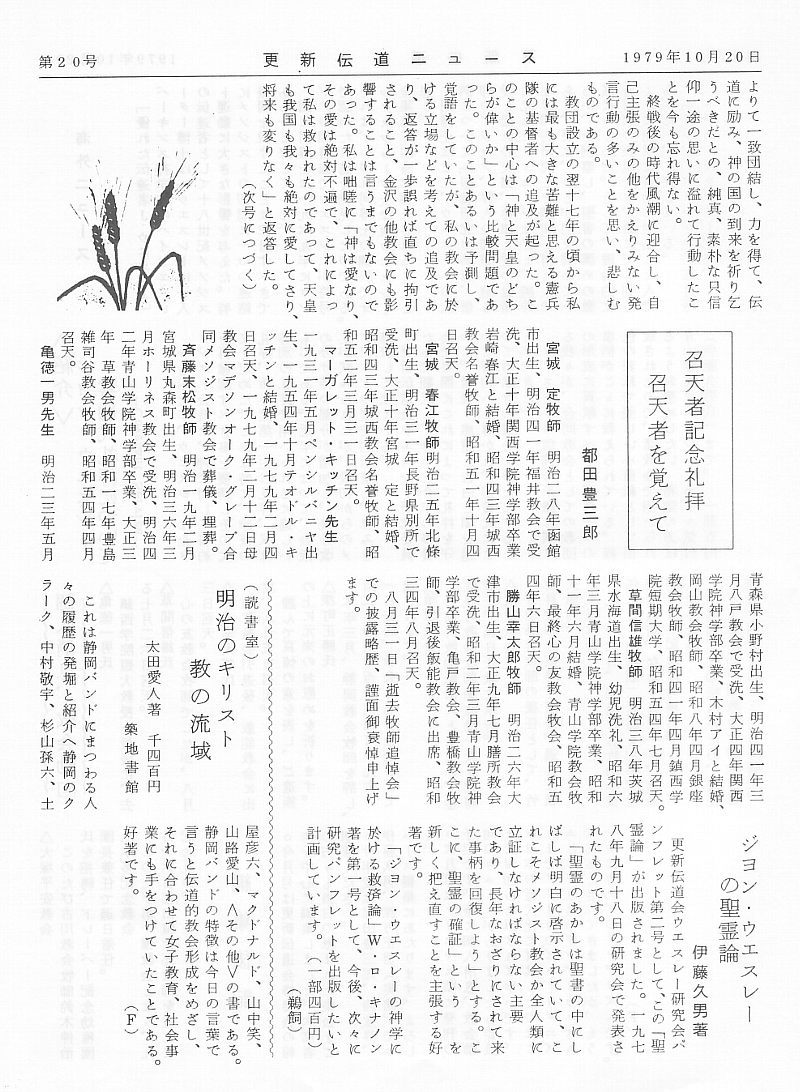 第20号
更新伝道ニュース
1979年10月20日
よりて一致団結し、力を得て、伝
道に励み、神の国の到来を祈り乞
うべきだとの、純真、素朴な只信
仰一途の思いに溢れて行動したこ
とを今も忘れ得ない。
終戦後の時代風潮に迎合し、自
己主張のみの他をかえりみない発
言行動の多いことを思い、悲しむ
ものである。
教団設立の翌十七年の頃から私
には最も大きな苦難と思える憲兵
隊の基督者への追及が起った。こ
のことの中心は「神と天皇のどち
らが偉いか」という比較問題であ
った。このことあるいは予測し、
覚語をしていたが、私の教会に於
ける立場などを考えての追及であ
り、返答が一歩誤れば直ちに拘引
されること、金沢の他教会にも影
響することは言うまでもないので
あった。私は咄嗟に「神は愛なり、
その愛は絶対不遍で、これによっ
て私は救われたのであって、天皇
も我国も我々も絶対に愛してさり、
将来も変りなく」と返答した。
(次号につづく)
召天者記念礼拝
召天者を覚えて
都田豊三郎
宮城 定牧師 明治二八年函館
市出生、明治四一年福井教会で受
洗、大正十年関西学院神学部卒業
岩崎春江と結婚、昭和四三年城西
教会名誉牧師、昭和五一年十月四
日召天。
宮城 春江牧師 明治二五年北條
町出生、明治三一年長野県別所で
受洗、大正十年宮城 定と結婚、
昭和四三年城西教会名誉牧師、昭
和五二年三月三一日召天。
マーガレット・キッチン先生
一九三一年五月ペンシルバニヤ出
生、一九五四年十月テオドル・キ
ッチンと結婚、一九七九年二月四
日召天、一九七九年二月十二日母
教会マデソンオーク・グレーブ合
同メソジスト教会で葬儀、埋葬。
斉藤末松牧師 明治一九年二月
宮城県丸森町出生、明治三六年三
月ホーリネス教会で受洗、明治四
二年青山学院神学部卒業、大正三
年 草教会牧師、昭和一七年豊島
雑司谷教会牧師、昭和五四年四月
召天。
亀徳一男先生 明治二三年五月
青森県小野村出生、明治四一年三
月八戸教会で受洗、大正四年関西
学院神学部卒業、木村アイと結婚、
岡山教会牧師、昭和八年四月銀座
教会牧師、昭和四一年四月鎮西学
院短期大学、昭和五四年七月召天。
草間信雄牧師 明治三八年茨城
県水海道出生、幼児洗礼、昭和六
年三月青山学院神学部卒業、昭和
十一年六月結婚、青山学院教会牧
師、最終心の友教会牧会、昭和五
四年六日召天。
勝山幸太郎牧師 明治二六年大
津市出生、大正九年七月膳所教会
で受洗、昭和二年三月青山学院神
学部卒業、亀戸教会、豊橋教会牧
師、引退後飯能教会に出席、昭和
三四年八月召天。
八月三一日「逝去牧師追悼会」
での披露略歴、謹面御哀悼申上げ
ます。
(読書室)
明治のキリスト
教の流域
太田愛人著 千四百円
築地書館
これは静岡バンドにまつわる人
々の履歴の発堀と紹介へ静岡のク
ラーク、中村敬宇、杉山孫六、土
屋彦六、マクドナルド、山中笑、
山路愛山、<その他>の書である。
静岡バンドの特徴は今日の言葉で
言うと伝道的教会形成をめざし、
それに合わせて女子教育、社会事
業にも手をつけていたことである。
好著です。
(F)
ジョン・ウエスレー
の聖霊論
伊藤久男著
更新伝道会ウエスレー研究会パ
ンフレット第二号として、この「聖
霊論」が出版されました。一九七
八年九月十八日の研究会で発表さ
れたものです。
「聖霊のあかしは聖書の中にし
ばしば明白に啓示されていて、こ
れこそメソジスト教会か全人類に
立証しなければならない主要
であり、長年なおざりにされて来
た事柄を回復しようとする。こ
こに、聖霊の確証」という を
新しく把え直すことを主張する好
著です。
「ジョン・ウエスレーの神学に
於ける救済論」W・ロ・キナノン
著を第一号として、今後、次々に
研究パンフレットを出版したいと
計画しています。(一部四百円)
(鵜飼)